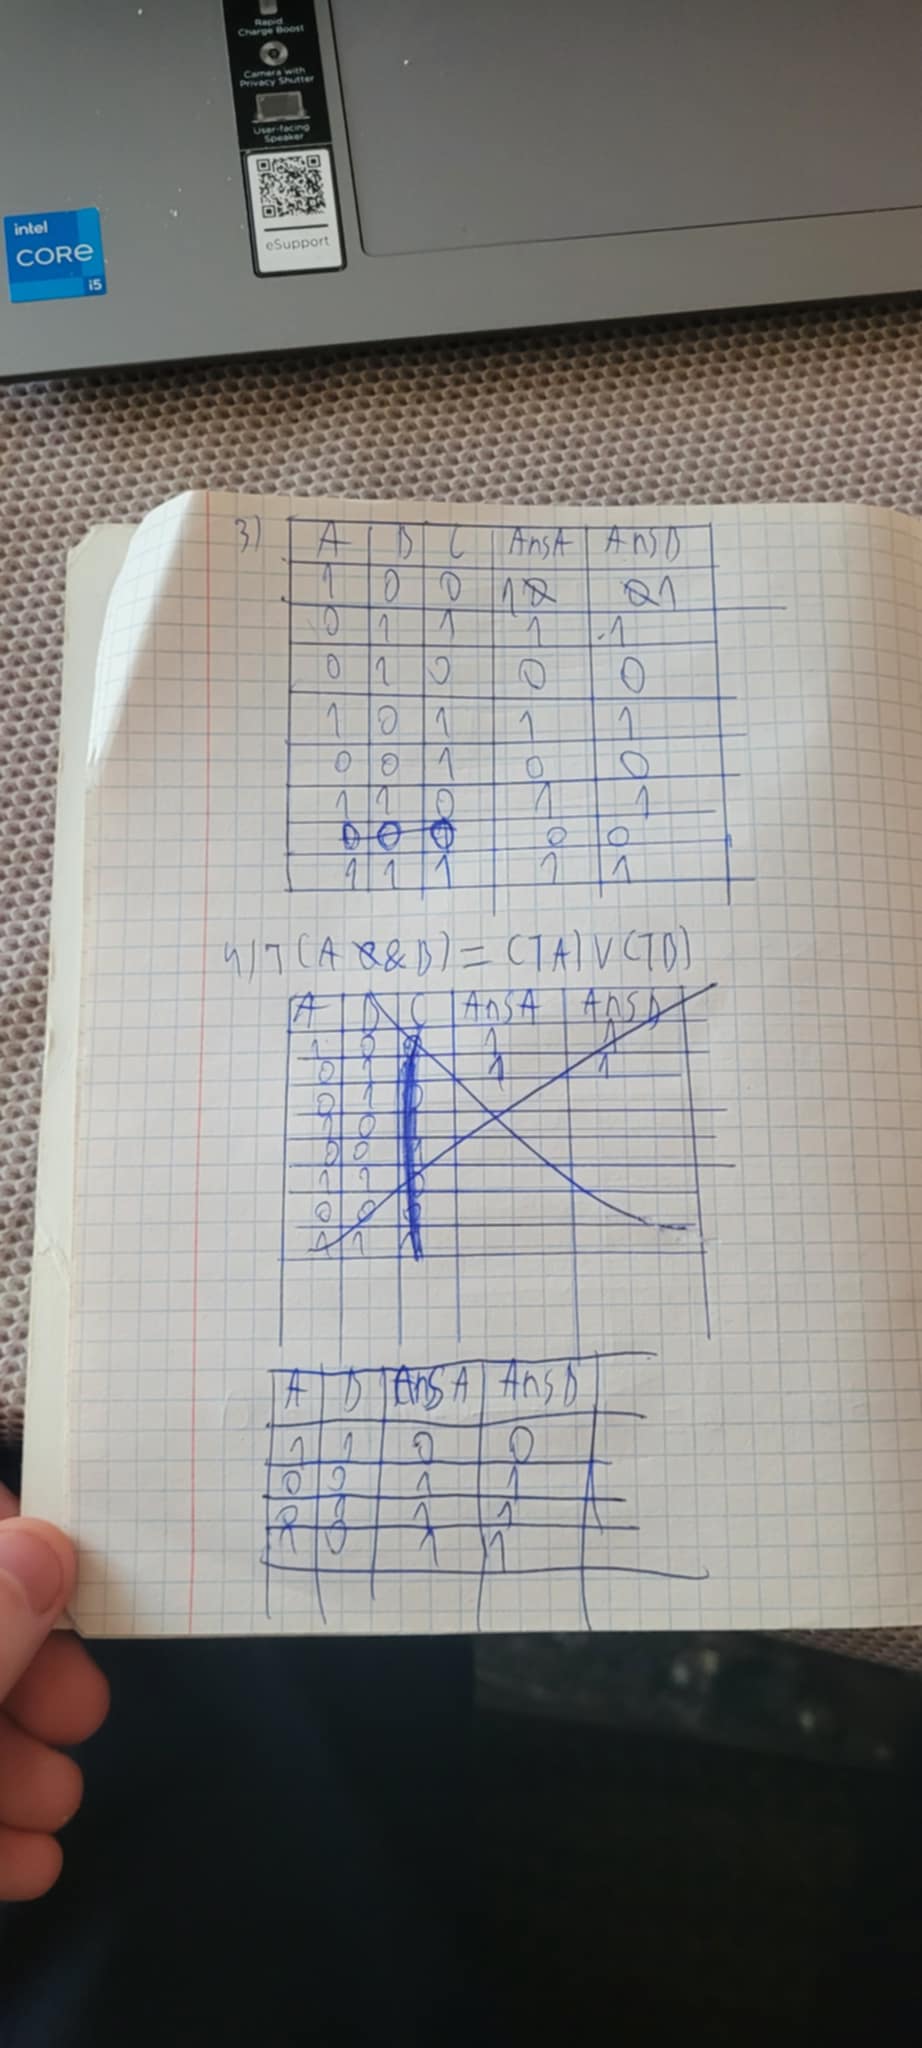 Rapid
Charge Boost
Camera with
Privacy Shutter
User-facing
Speaker
eSupport
intel
CORE
i5
3)
A B C AnsA AnsB
1 0 0 1 0 1
0 1 1 1 1
0 1 0 0 0
1 0 1 1 1
0 0 1 0 0
1 1 0 1 1
0 0 0 0 0
1 1 1 1 1
4) ¬(A & B) = (¬A) V (¬B)
A B C AnsA AnsB
1 0 1 1
0 1 1 1
0 1
1 0
0 0
1 1
0 0
1 1
A B AnsA AnsB
1 1 0 0
0 0 1 1
1 1
0 1 1